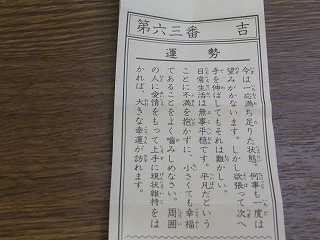 第六三番 吉
運勢
今は一応満ち足りた状態。何事も一度は
望みがかないます。しかし欲張って次へ
手を伸ばしてもそれは難かしい。
日常生活は無事平穏です。平凡だという
ことに不満を抱かずに、小さくても幸福
であることをよく嚙みしめなさい。周囲
の人に愛情をもって上手に現状維持をは
かれば、大きな幸運が訪れます。